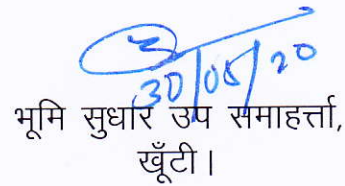 30/05/20
भूमि सुधार उप समाहर्त्ता,
खूँटी।